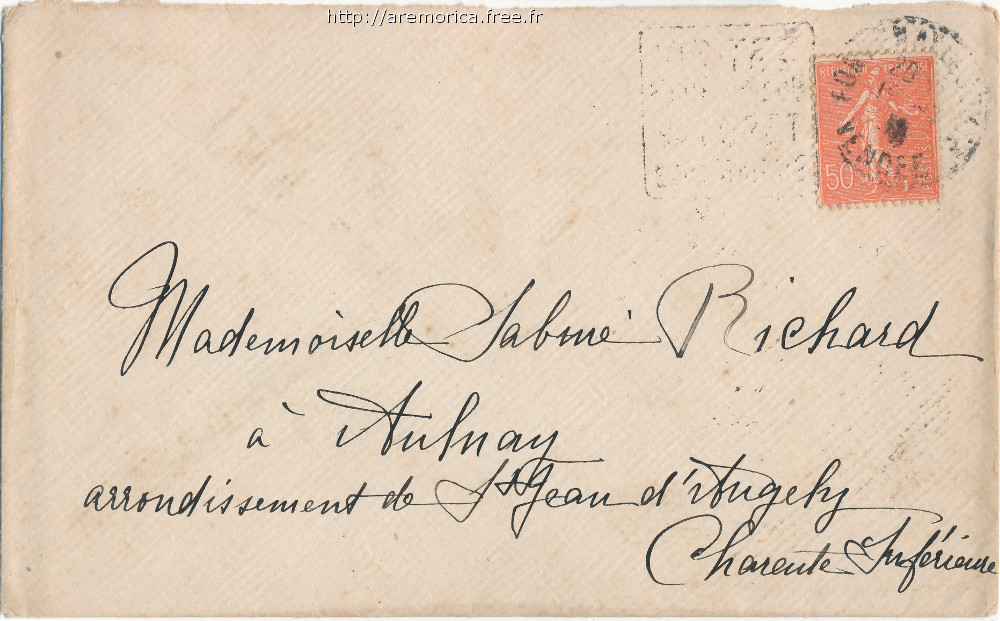 http://aremorica.free.fr
REPUBLIQUE FRANCAISE
50
VENDEE
Mademoiselle Sabine Richard
à Aulnay
arrondissement de St Jean d'Angely
Charente Inférieure